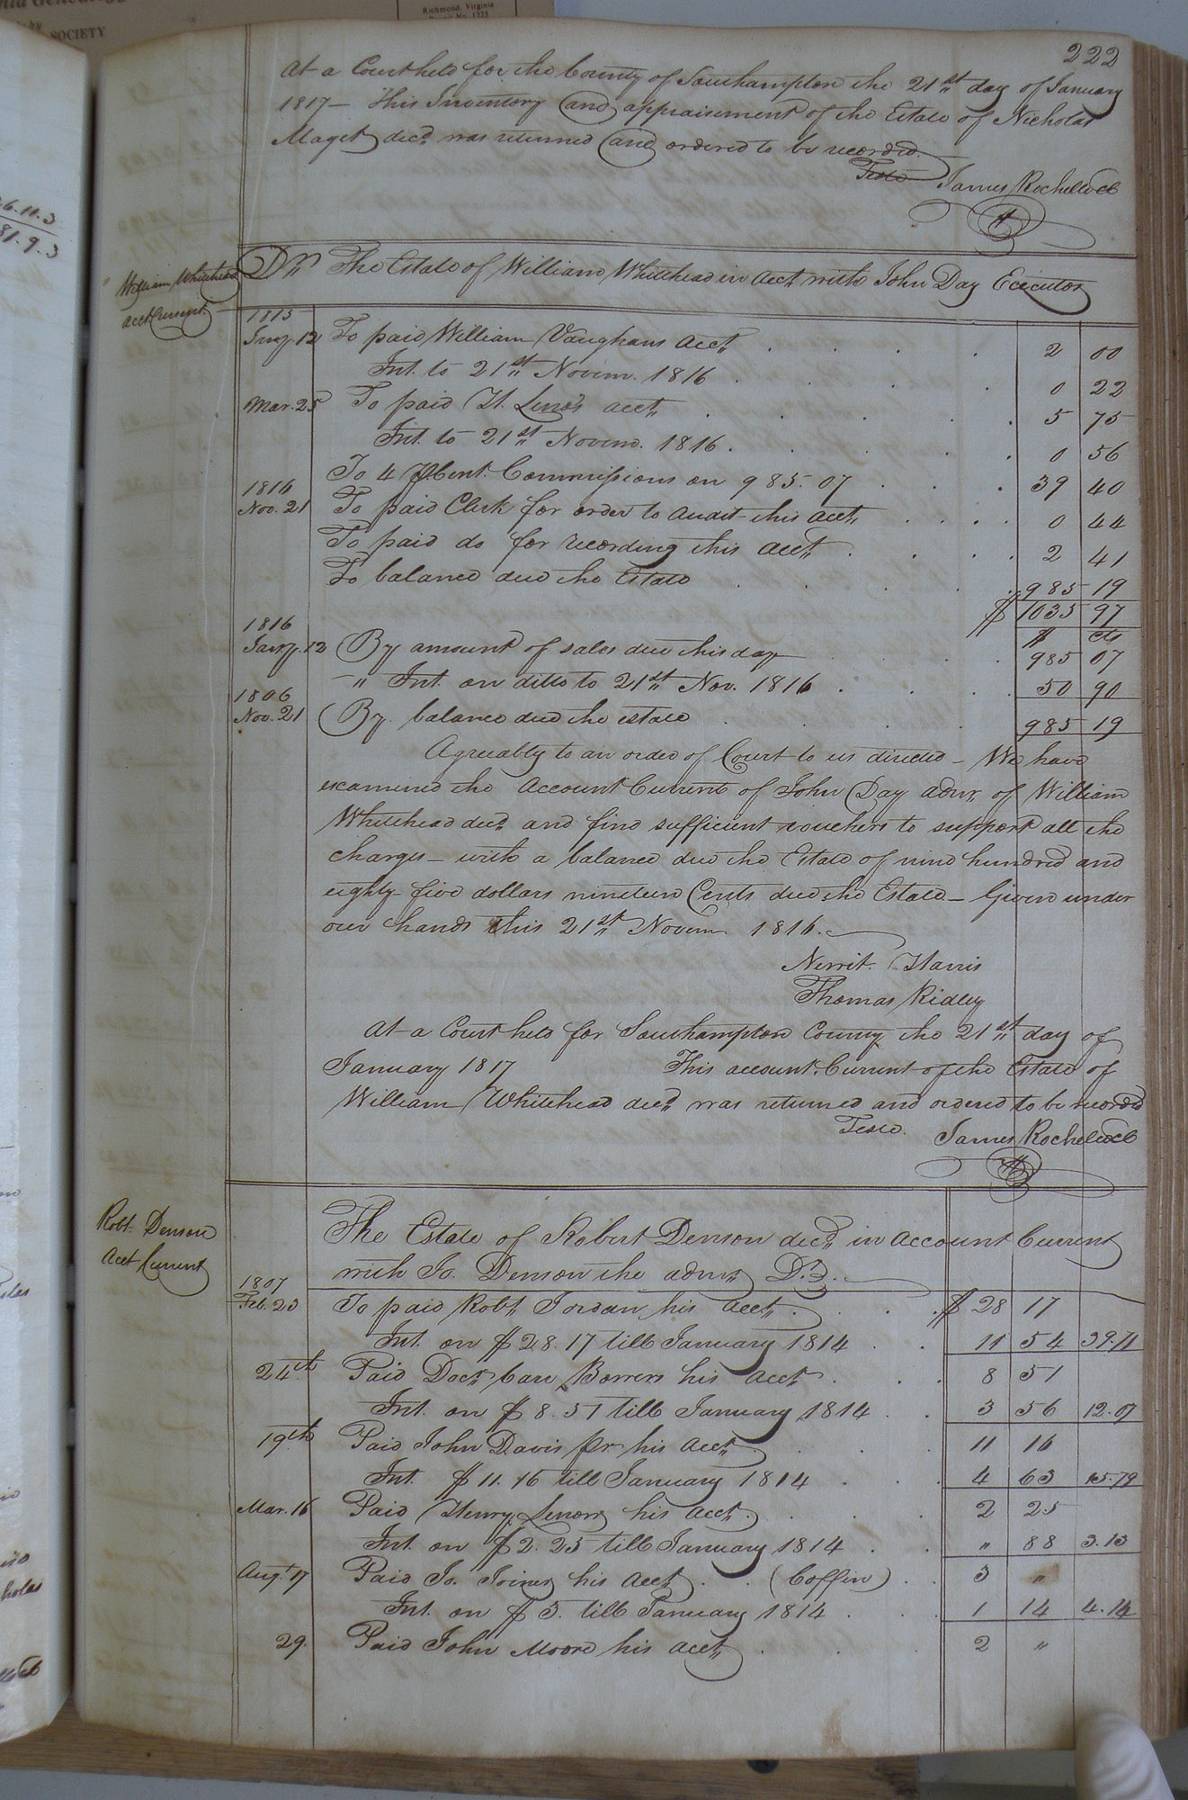 SOCIETY
Richmond, Virginia
222
At a Court held for the County of Southampton the 21st day of January
1817 – This Inventory and appraisement of the Estate of Nicholas
Maget decd was returned and ordered to be recorded
Teste James Rochelle CC
6.11.3
81.9.3
William Whitehead
acct Current
Dr The Estate of William Whitehead in acct with John Day Executor
1815
Jany. 12 To paid William Vaughans acct 2 00
Int. to 21st Novem. 1816 0 22
Mar. 25 To paid H. Lenos acct 5 75
Int. to 21st Novem. 1816 0 56
To 4 pCent. Commissions on 985.07 39 40
1816
Nov. 21 To paid Clerk for order to audit this acct 0 44
To paid do for recording this acct 2 41
To balance due the Estate 985 19
$ 1035 97
1816 $ cts
Jany. 12 By amount of sales due this day 985 07
" Int. on ditto to 21st Nov. 1816 50 90
1806
Nov. 21 By balance due the estate 985 19
Agreeably to an order of Court to us directed – We have
examined the Account Current of John Day admr. of William
Whitehead decd and find sufficient vouchers to support all the
charges – with a balance due the Estate of nine hundred and
eighty five dollars nineteen Cents due the Estate – Given under
our hands this 21st Novem 1816.
Nerrit. Harris
Thomas Ridley
At a Court held for Southampton County the 21st day of
January 1817 This account Current of the Estate of
William Whitehead decd was returned and ordered to be recorded
Teste. James Rochelle CC
Robt Denson
Acct Current
The Estate of Robert Denson decd in account Current
with Jo. Denson the admr Dr.
1807
Feb. 23 To paid Robt Jordan his acct $ 28 17
Int. on $28.17 till January 1814 11 54 39.71
24th Paid Doct. Carr Bowers his acct 8 51
Int. on $8.51 till January 1814 3 56 12.07
19th Paid John Davis pr his acct 11 16
Int. $11.16 till January 1814 4 63 15.79
Mar. 16 Paid Henry Lenow his acct. 2 25
Int. on $2.25 till January 1814 " 88 3.13
Augt. 17 Paid Jo. Joiner his acct (Coffin) 3 "
Int. on $3. till January 1814 1 14 4.14
29. Paid John Moore his acct 2 "